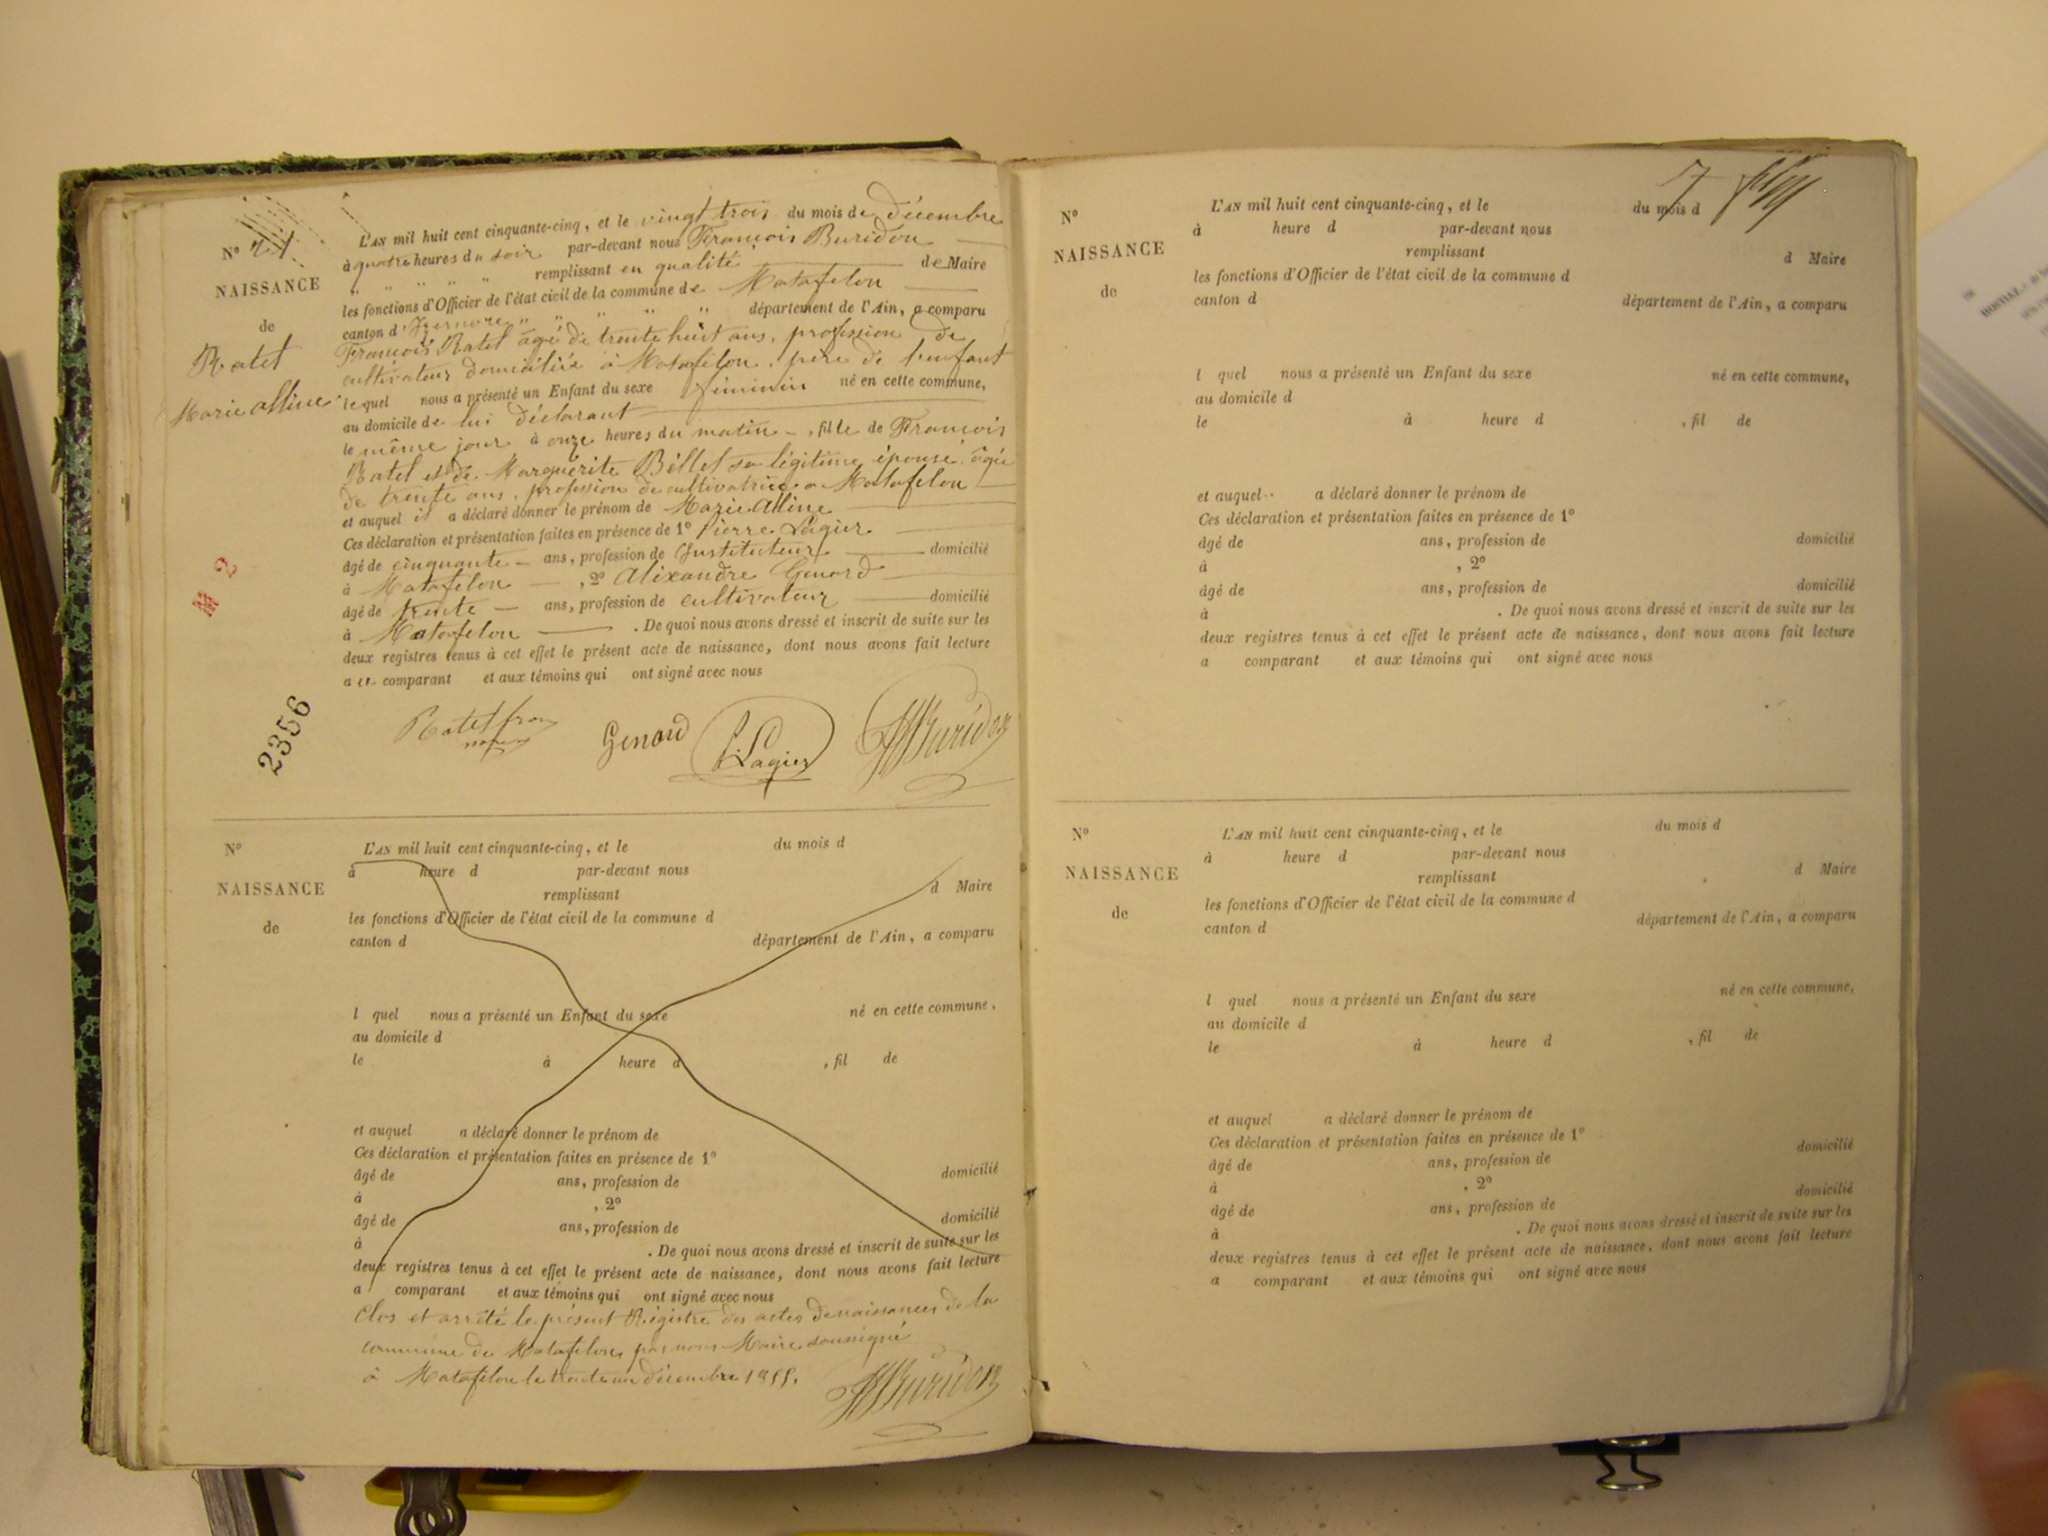 N° 21
NAISSANCE
de
Ratel
Marie Alline
L'AN mil huit cent cinquante-cinq, et le vingt trois du mois de décembre
à quatre heures du soir par-devant nous François Buridon
remplissant en qualité de Maire
les fonctions d'Officier de l'état civil de la commune de Matafelon
canton d'Izernore département de l'Ain, a comparu
François Ratel âgé de trente huit ans, profession de
cultivateur domicilié à Matafelon, père de l'enfant
lequel nous a présenté un Enfant du sexe féminin né en cette commune,
au domicile de lui déclarant
le même jour à onze heures du matin, fille de François
Ratel et de Marguérite Billet sa légitime épouse, âgée
de trente ans, profession de cultivatrice a Matafelon
et auquel il a déclaré donner le prénom de Marie Alline
Ces déclaration et présentation faites en présence de 1° Pierre Lagier
âgé de cinquante ans, profession de Instituteur domicilié
à Matafelon, 2° Alixandre Genord
âgé de trente ans, profession de cultivateur domicilié
à Matafelon. De quoi nous avons dressé et inscrit de suite sur les
deux registres tenus à cet effet le présent acte de naissance, dont nous avons fait lecture
a u comparant et aux témoins qui ont signé avec nous
Ratel fran
Genord
P. Lagier
Buridon
M 2
2356
N°
NAISSANCE
de
L'AN mil huit cent cinquante-cinq, et le du mois d
à heure d par-devant nous
remplissant d Maire
les fonctions d'Officier de l'état civil de la commune d
canton d département de l'Ain, a comparu
l quel nous a présenté un Enfant du sexe né en cette commune,
au domicile d
le à heure d , fil de
et auquel a déclaré donner le prénom de
Ces déclaration et présentation faites en présence de 1°
âgé de ans, profession de domicilié
à , 2°
âgé de ans, profession de domicilié
à . De quoi nous avons dressé et inscrit de suite sur les
deux registres tenus à cet effet le présent acte de naissance, dont nous avons fait lecture
a comparant et aux témoins qui ont signé avec nous
Clos et arrêté le présent Régistre des actes de naissances de la
commune de Matafelon, par nous Maire soussigné
à Matafelon le trente un décembre 1855.
Buridon
7
N°
NAISSANCE
de
L'AN mil huit cent cinquante-cinq, et le du mois d
à heure d par-devant nous
remplissant d Maire
les fonctions d'Officier de l'état civil de la commune d
canton d département de l'Ain, a comparu
l quel nous a présenté un Enfant du sexe né en cette commune,
au domicile d
le à heure d , fil de
et auquel a déclaré donner le prénom de
Ces déclaration et présentation faites en présence de 1°
âgé de ans, profession de domicilié
à , 2°
âgé de ans, profession de domicilié
à . De quoi nous avons dressé et inscrit de suite sur les
deux registres tenus à cet effet le présent acte de naissance, dont nous avons fait lecture
a comparant et aux témoins qui ont signé avec nous
N°
NAISSANCE
de
L'AN mil huit cent cinquante-cinq, et le du mois d
à heure d par-devant nous
remplissant d Maire
les fonctions d'Officier de l'état civil de la commune d
canton d département de l'Ain, a comparu
l quel nous a présenté un Enfant du sexe né en cette commune,
au domicile d
le à heure d , fil de
et auquel a déclaré donner le prénom de
Ces déclaration et présentation faites en présence de 1°
âgé de ans, profession de domicilié
à , 2°
âgé de ans, profession de domicilié
à . De quoi nous avons dressé et inscrit de suite sur les
deux registres tenus à cet effet le présent acte de naissance, dont nous avons fait lecture
a comparant et aux témoins qui ont signé avec nous